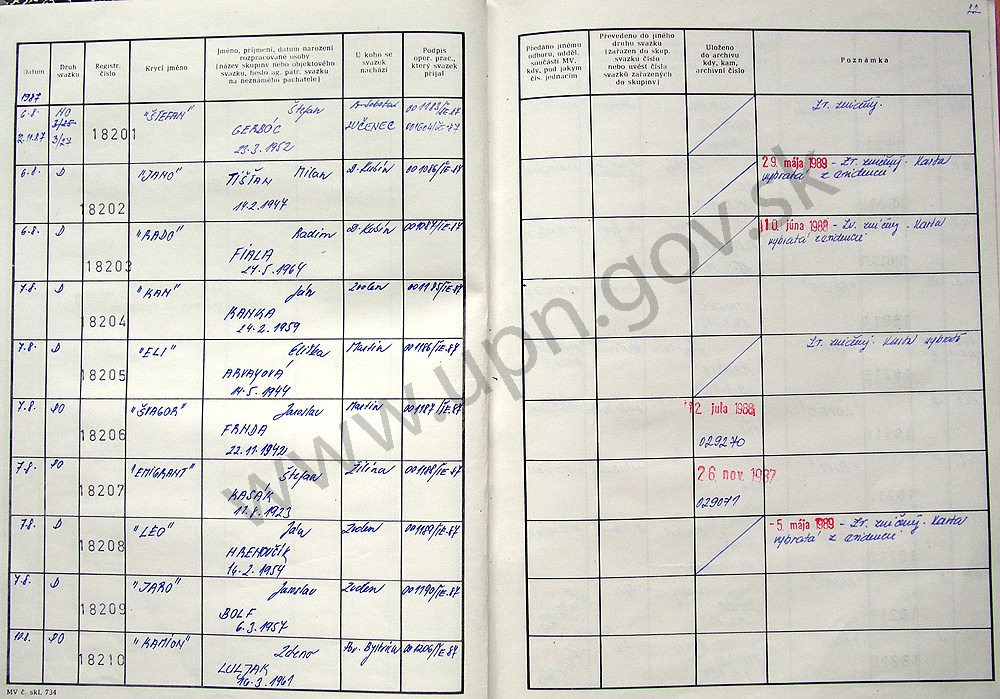 22
Datum
Druh svazku
Registr. číslo
Krycí jméno
Jméno, příjmení, datum narození
rozpracované osoby
(název skupiny nebo objektového
svazku, heslo ag. pátr. svazku
na neznámého pachatele)
U koho se
svazek
nachází
Podpis
oper. prac.,
který svazek
přijal
Předáno jinému
odboru, odděl.
součásti MV,
kdy, pod jakým
čís. jednacím
Převedeno do jiného
druhu svazku
(zařazen do skup.
svazku číslo
nebo uvést čísla
svazků zařazených
do skupiny)
Uloženo
do archivu
kdy, kam,
archivní číslo
Poznámka
1987
6.8. 18201 "ŠTEFAN" Štefan
2.11.87 3/27 GERBÓC LUČENEC
23.3.1952
Zv. zničený.
6.8. D "JANO" Milan D. Kubín
TIŠŤAN
18202 14.2.1947
29. mája 1989 - Zv. zničený. Karta
vybratá z evidencie
6.8. D "RADO" Radim D. Kubín 001087/IE-87
FIALA
18203 27.5.1964
10. júna 1988 - Zv. zničený. Karta
vybratá z evidencie
7.8. D "KAN" Ján Zvolen 001185/IE-87
18204 KANKA
24.2.1959
7.8. D "ELI" Eliška Martin 001186/IE-87
18205 ARVAYOVÁ
14.5.1944
Zv. zničený. Karta vybratá
7.8. PO "ŠVAGOR" Jaroslav Martin 001187/IE-87
18206 FRNDA
22.11.1942
12. júla 1988
029270
7.8. PO "EMIGRANT" Štefan Žilina 001188/IE-87
18207 KASÁK
11.8.1923
26. nov. 1987
029071
7.8. D "LEO" Ján Zvolen 001189/IE-87
18208 HREHOVČÍK
14.2.1954
- 5. mája 1989 - Zv. zničený. Karta
vybratá z evidencie
7.8. D "JARO" Jaroslav Zvolen 001190/IE-87
18209 BOLF
6.3.1957
11.8. PO "KAMION" Zdeno Pov. Bystrica 001206/IE-87
18210 LULJAK
16.3.1961
MV č. skl. 734
www.upn.gov.sk